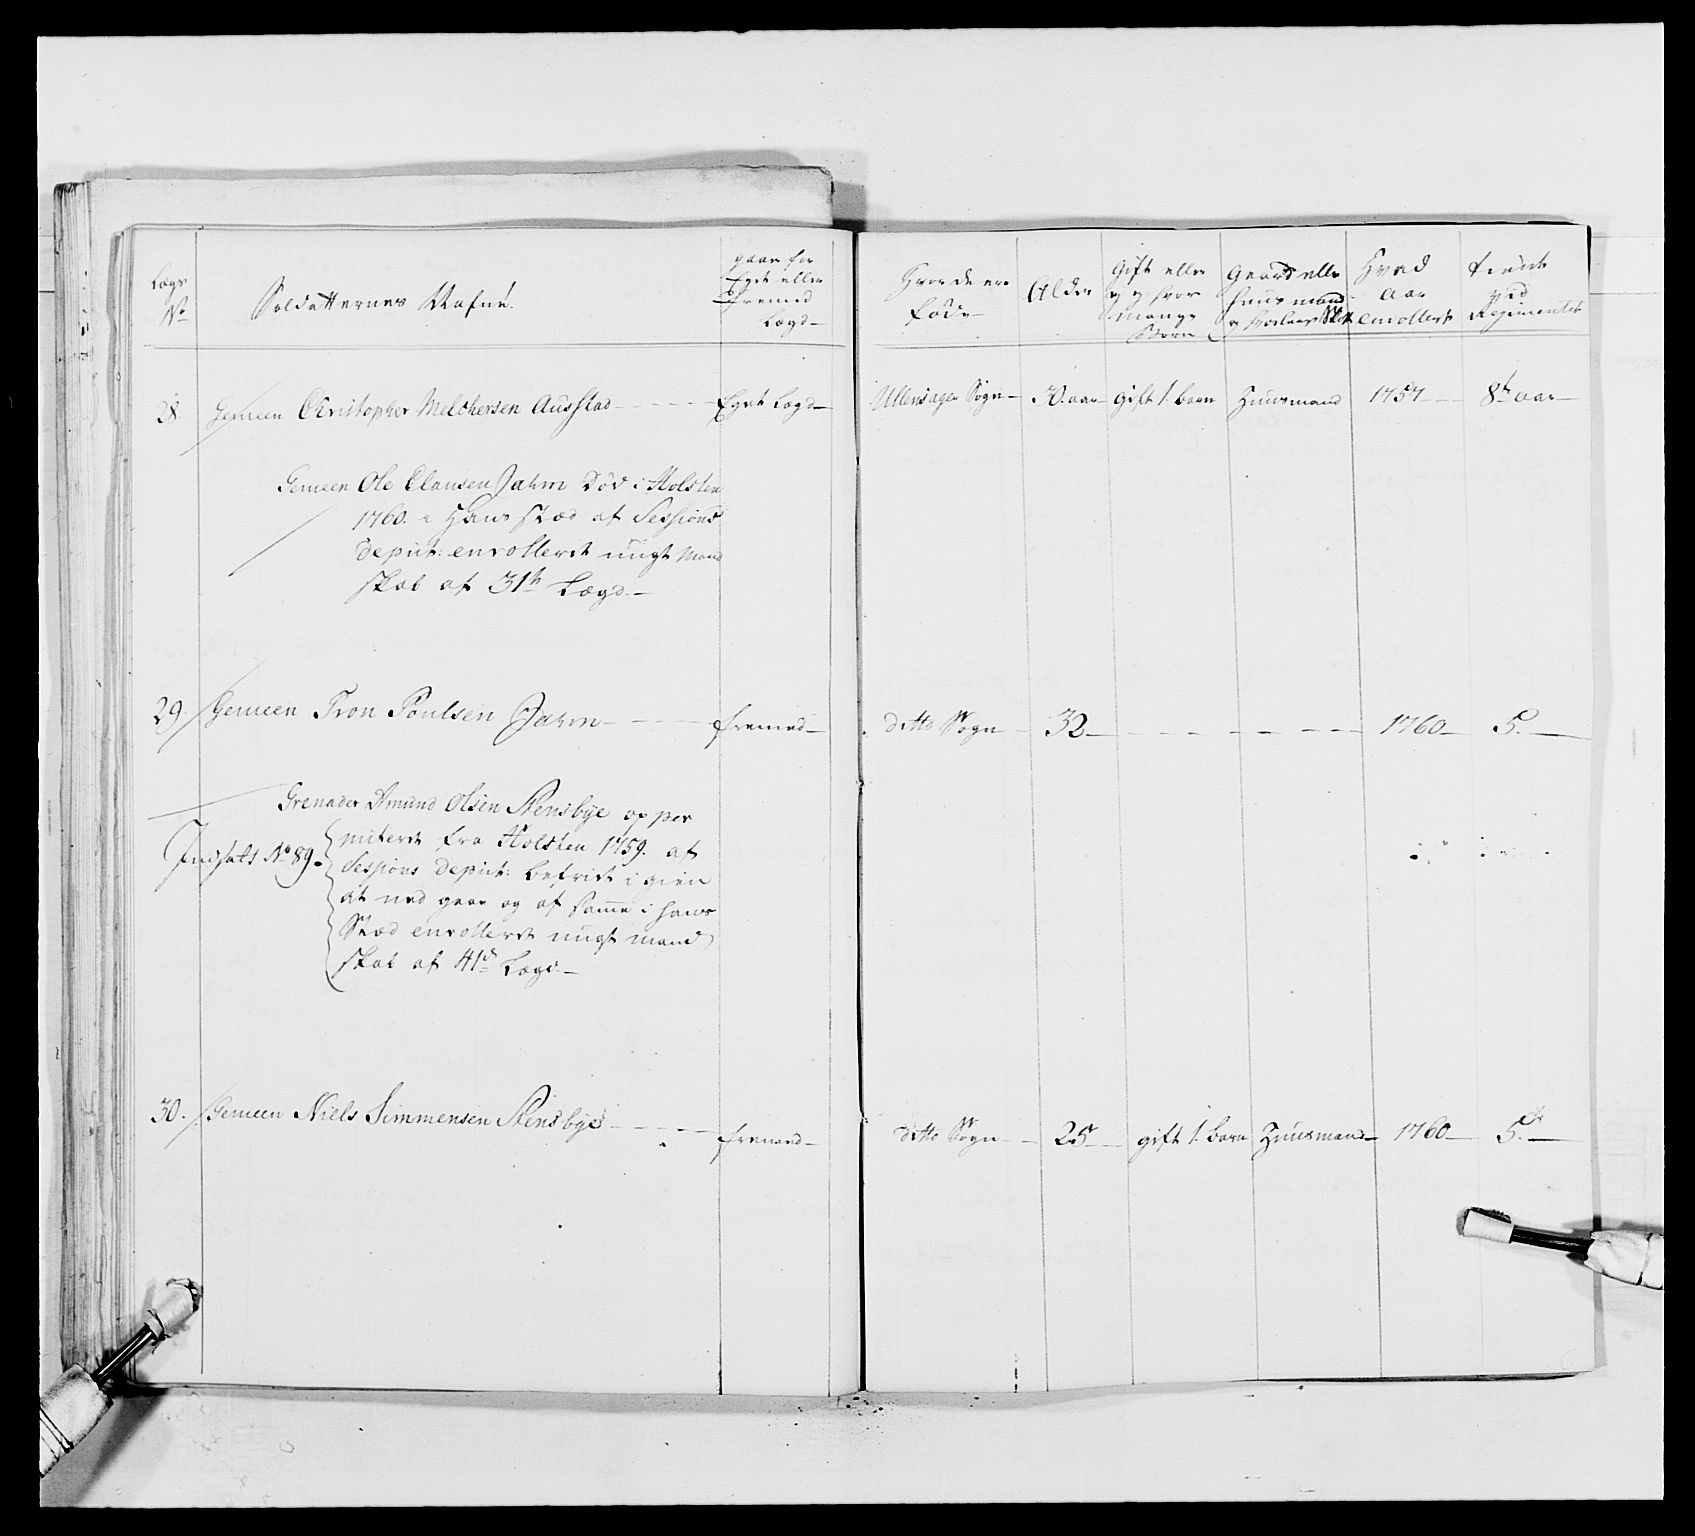 Lægs No
Soldatternes Nafne.
gaar for Eget eller fremed Lægd
Hvor de ere føde
Alder
Gift eller ey og hvor mange Børn
Gaard eller Huusmand
Hvad Aar enrollert
tient ved Regimentet
28. Gemeen Christopher Melchersen Ausstad Eget Lægd Ullensager Sogn 30. aar gift 1. barn Huusmand 1757 8te aar
Gemeen Ole Clausen Jahm Død i Holsten
1760. i Hans stæd af Sessions
deput: enrolleret nügt Mand
skab af 31te Lægd.
29. Gemeen Tron Poulsen Jahm fremed ditto Sogn 32 1760 5.
Grenader Amund Olsen Stensbye op per
miteret fra Holsten 1759. af
Indsats No 89.
Sessions deput: befriet i gien
at ned gaae og af samme i hans
Stæd enrolleret nügt mand
skab af 41de Lægd.
30. Gemeen Niels Simmensen Stensbye fremed ditto Sogn 25 gift 1. barn Huusmand 1760 5.